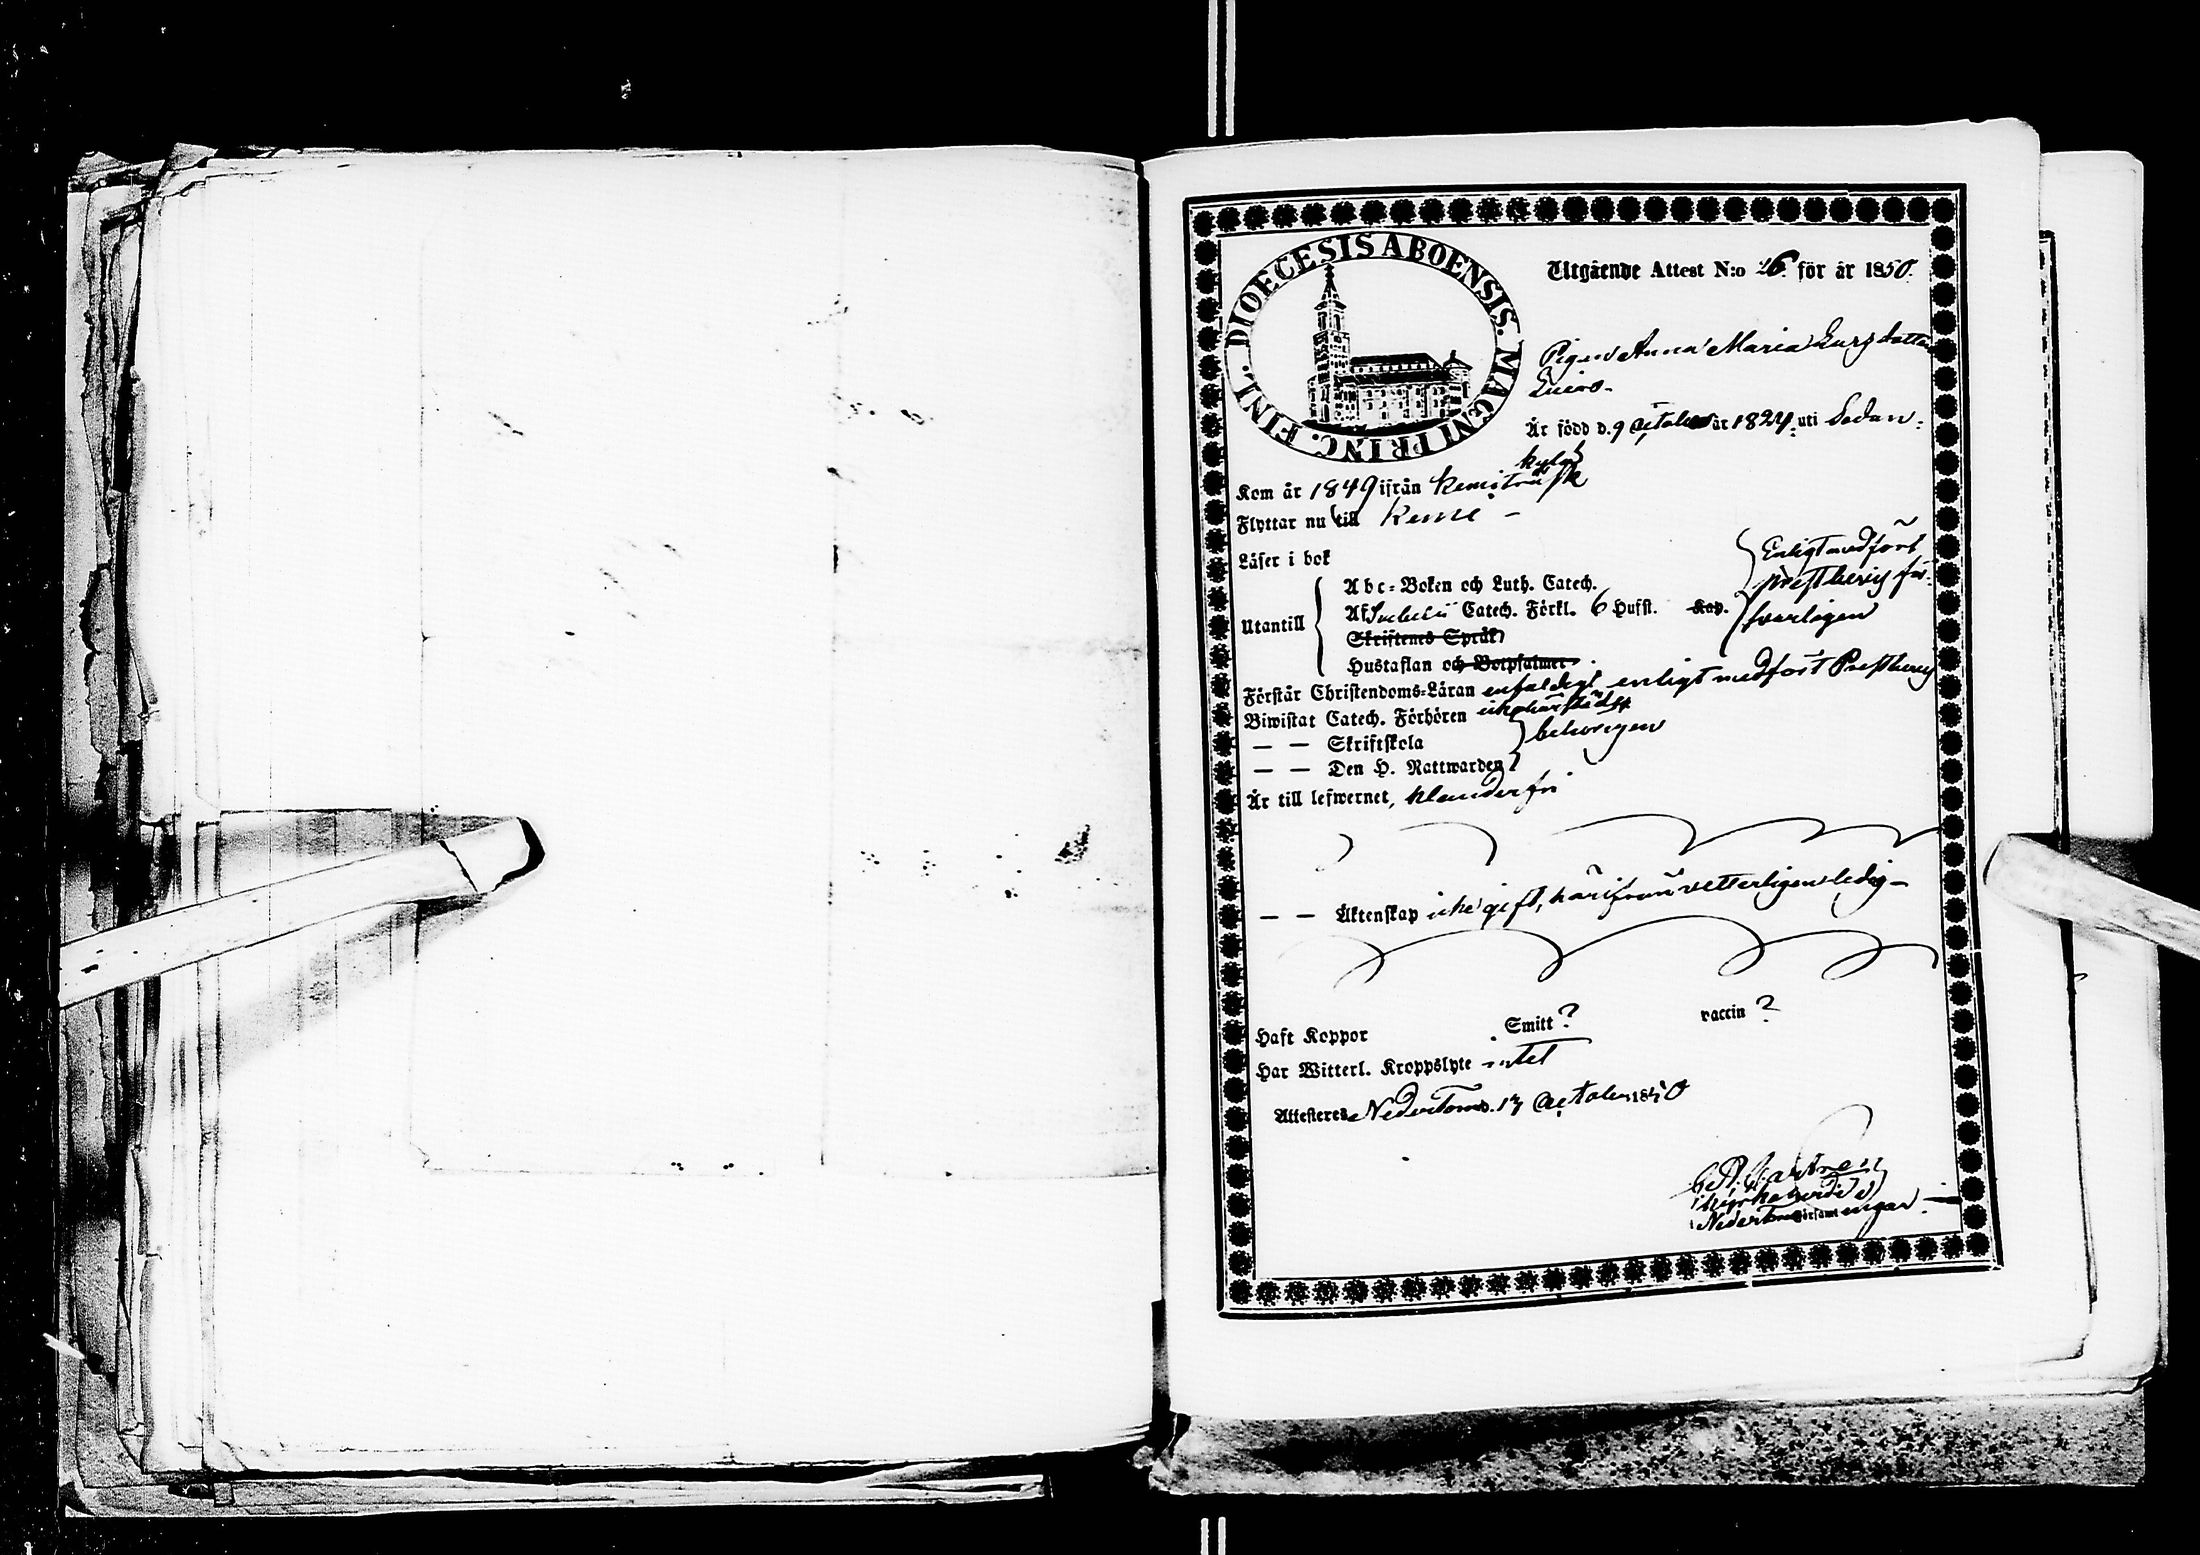 DIOECESIS ABOENSIS. MAGNI PRINC. FINL.
Utgående Attest N:o 26. för år 1850.
Pigan Anna Maria Larsdotter
Är född d. 9 October år 1824 uti Sodan-
kylä
Kom år 1849 ifrån Kemiträsk
Flyttar nu till Kemi -
Läser i bok
Enligt medfört
Abc-Boken och Luth. Catech.
prestbevis för-
Utantill Af Svebelii Catech. Förkl. 6 Hufst. Kap.
svarligen
Skriftenes Språk
Hustaflan och Botpsalmer
Förstår Christendoms-Läran enfaldigt enligt medfört Prestbevis
Biwistat Catech. Förhören
— — Skriftskola behörigen
— — Den H. Nattwarden
Är till lefwernet, klanderfri
— — Äktenskap icke gift, härifrån vetterligen ledig -
Haft Koppor Smitt ? vaccin ?
Har Witterl. Kroppslyte intet
Attesteras Nedertorneå d. 13 October 1850
i Nedertorneå Församlingar.